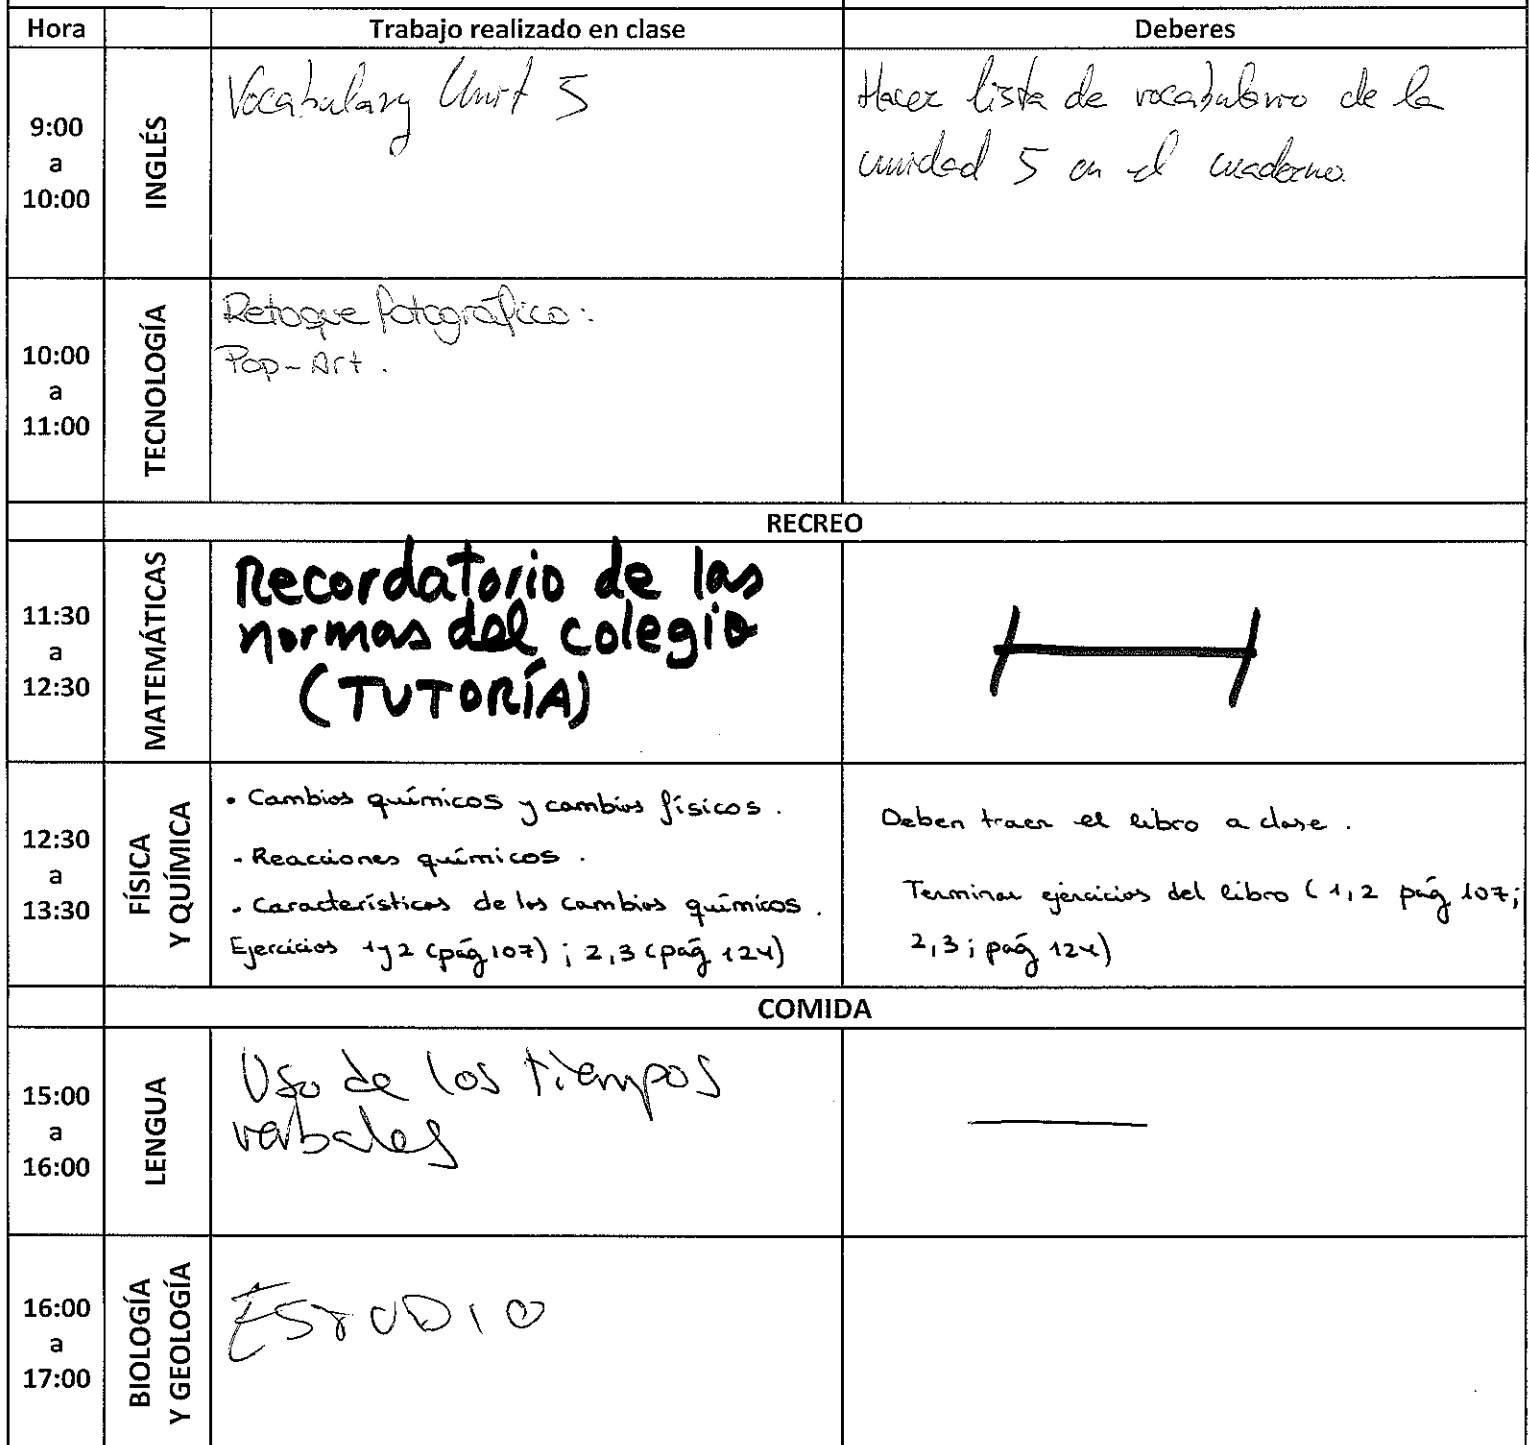 Hora Trabajo realizado en clase Deberes
9:00
a
10:00
INGLÉS
Vocabulary Unit 5
Hacer lista de vocabulario de la
unidad 5 en el cuaderno.
10:00
a
11:00
TECNOLOGÍA
Retoque fotográfico:
Pop-Art.
RECREO
11:30
a
12:30
MATEMÁTICAS
Recordatorio de las
normas del colegio
(TUTORÍA)
12:30
a
13:30
FÍSICA
Y QUÍMICA
• Cambios químicos y cambios físicos.
- Reacciones químicos.
- Características de los cambios químicos.
Ejercicios 1y2 (pág 107); 2,3 (pág 124)
Deben traer el libro a clase.
Terminar ejercicios del libro (1,2 pág 107;
2,3; pág 124)
COMIDA
15:00
a
16:00
LENGUA
Uso de los tiempos
verbales
16:00
a
17:00
BIOLOGÍA
Y GEOLOGÍA
ESTUDIO